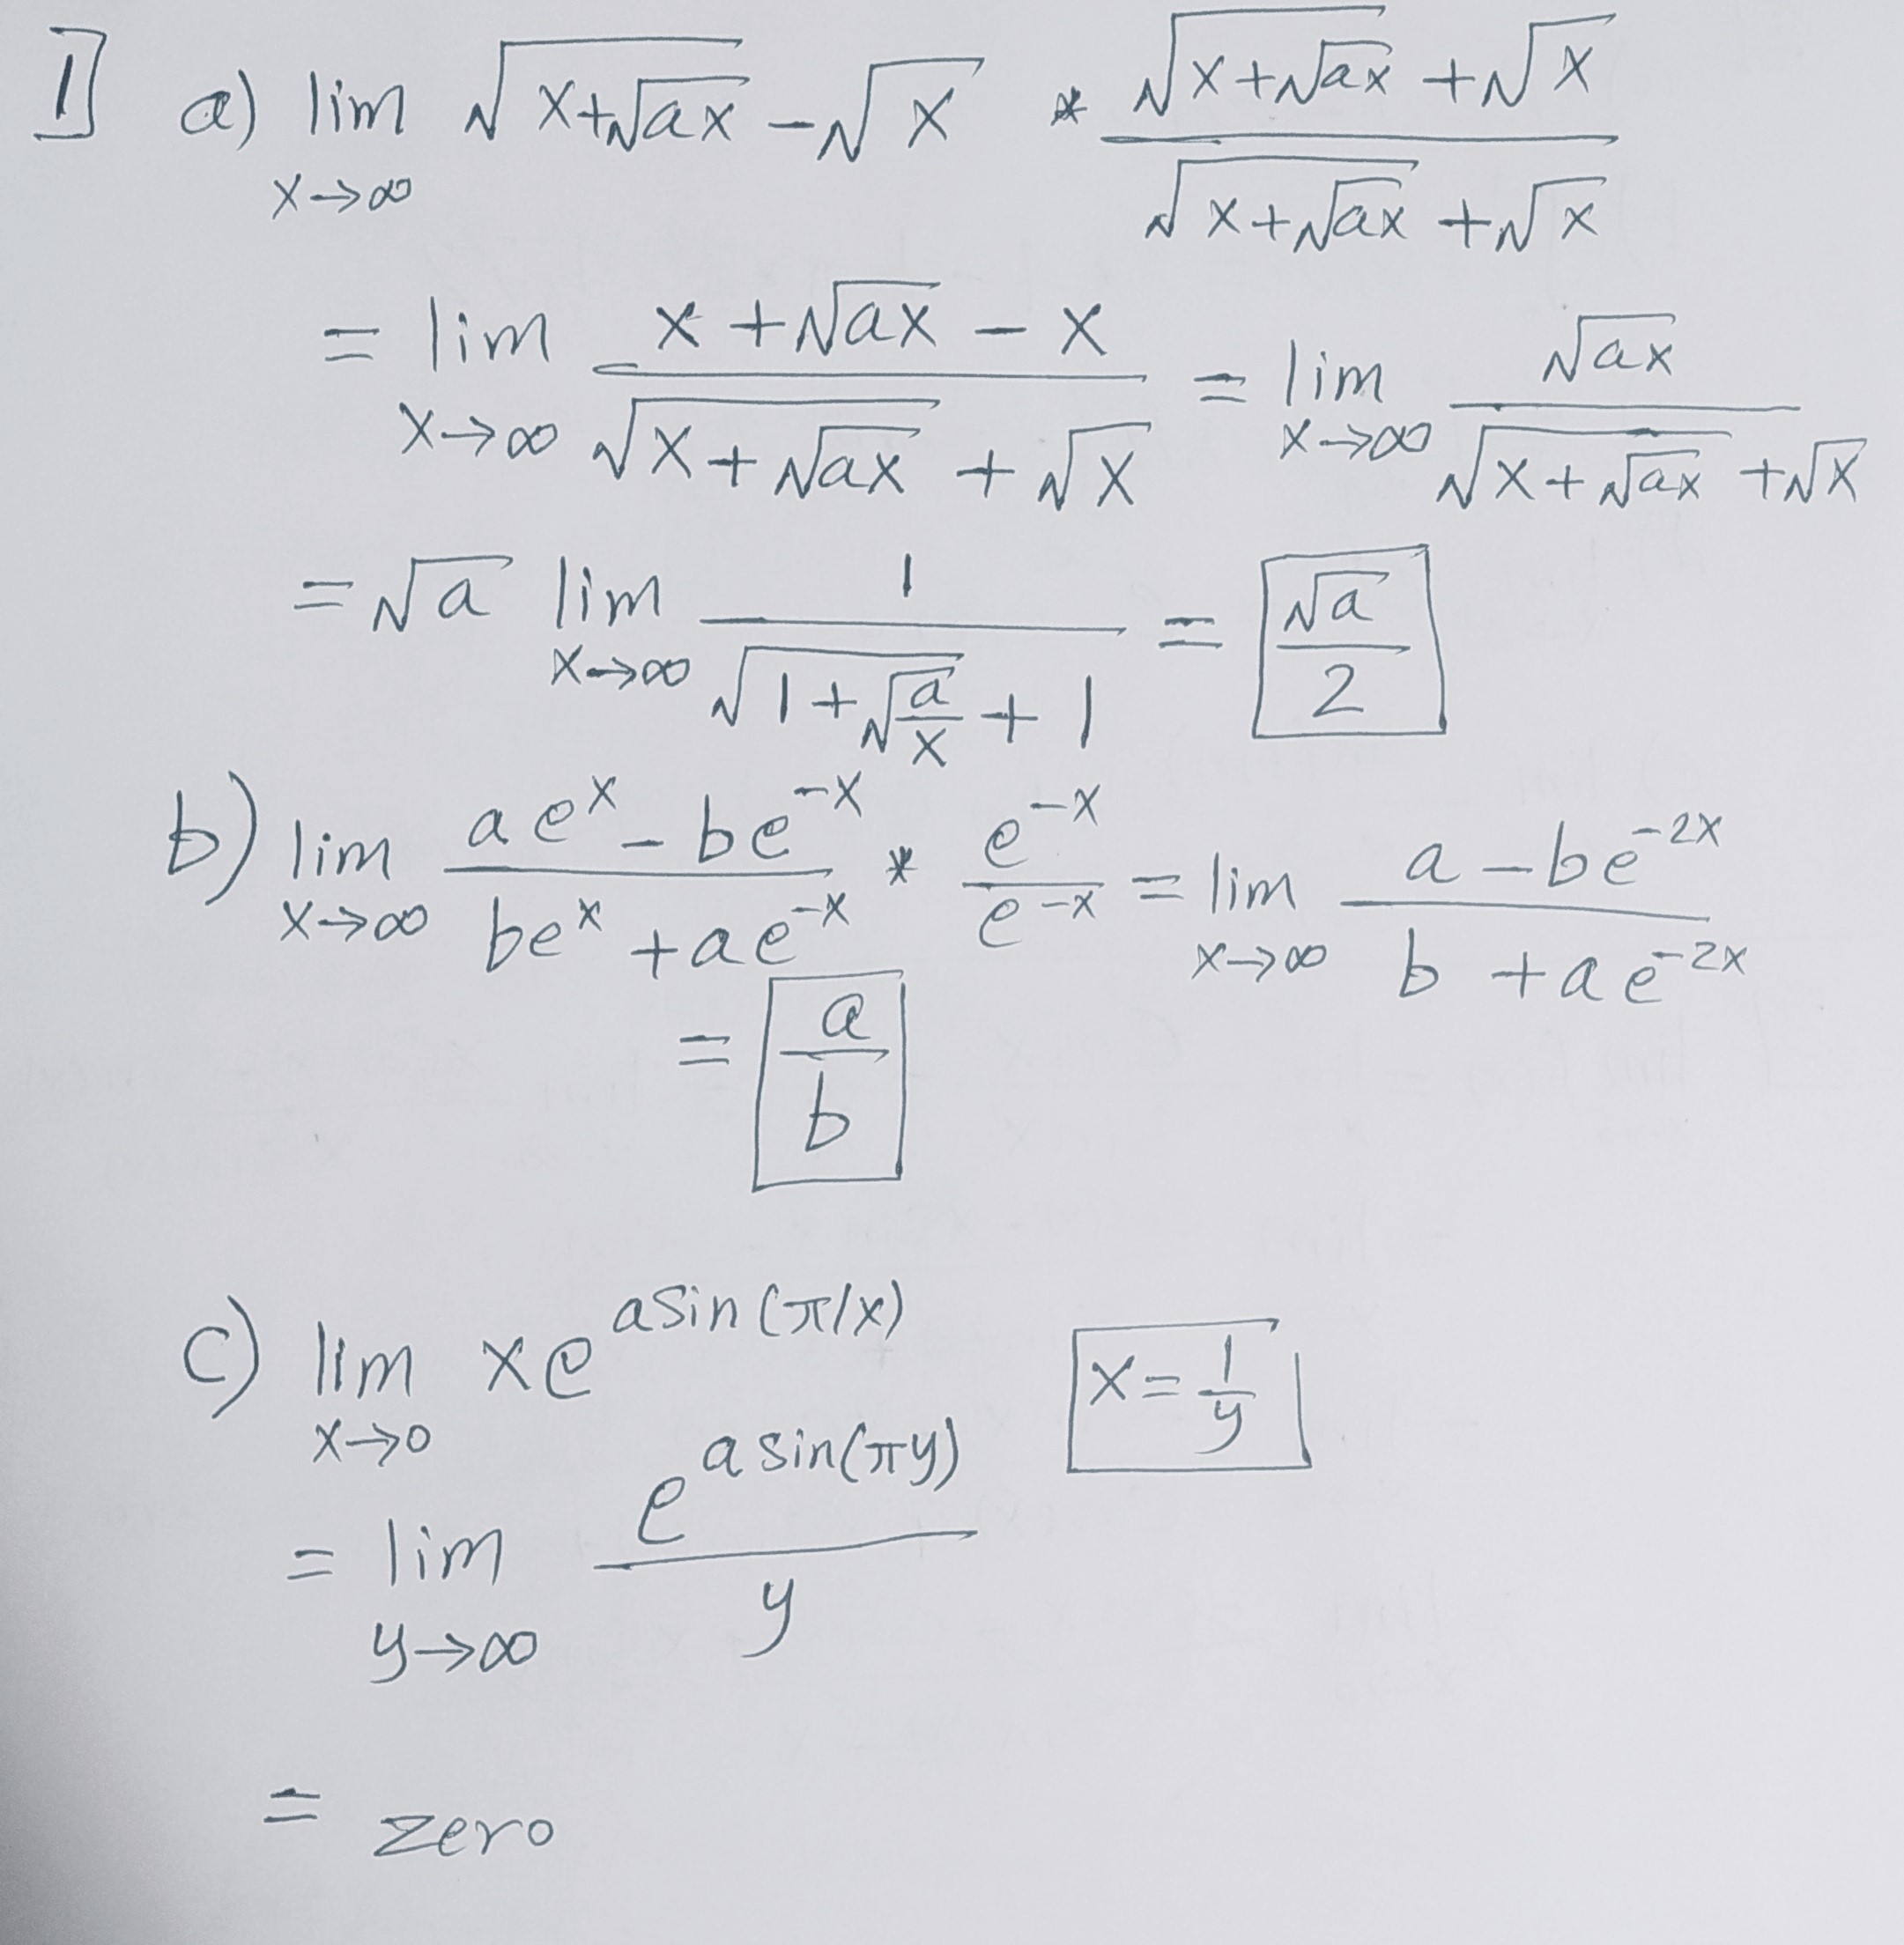 1] a) lim x→∞ √(x+√(ax)) - √x * (√(x+√(ax)) + √x)/(√(x+√(ax)) + √x)
= lim x→∞ (x + √(ax) - x)/(√(x+√(ax)) + √x) = lim x→∞ √(ax)/(√(x+√(ax)) + √x)
= √a lim x→∞ 1/(√(1+√(a/x)) + 1) = √a/2
b) lim x→∞ (ae^x - be^-x)/(be^x + ae^-x) * e^-x/e^-x = lim x→∞ (a - be^-2x)/(b + ae^-2x)
= a/b
c) lim x→0 xe^(a sin(π/x)) x = 1/y
= lim y→∞ e^(a sin(πy))/y
= zero